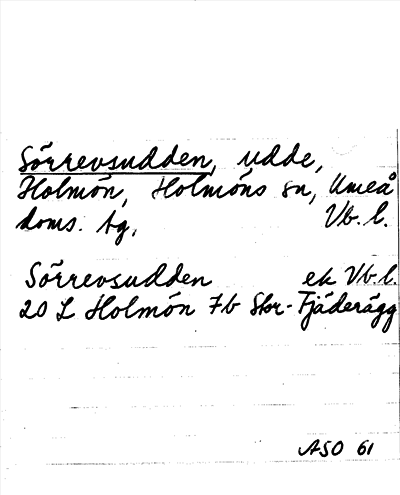 Sörrevsudden, udde,
Holmön, Holmöns sn, Umeå
doms. tg, Vb. l.
Sörrevsudden ek Vb. l.
20 L Holmön 7b Skr-Fjäderägg
ASO 61